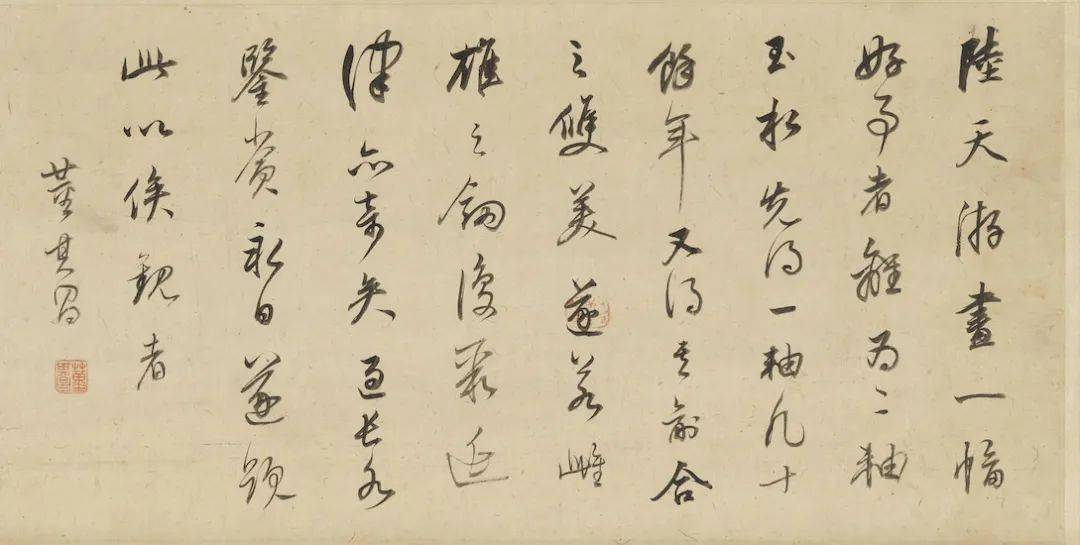 陸天游畫一幅
好事者離為二軸
玉松先得一軸凡十
餘年又得其前合
之雙美遂若雌
雄之劍復聚延
津亦奇矣過長水
鑒賞永日遂題
此以俟觀者
董其昌